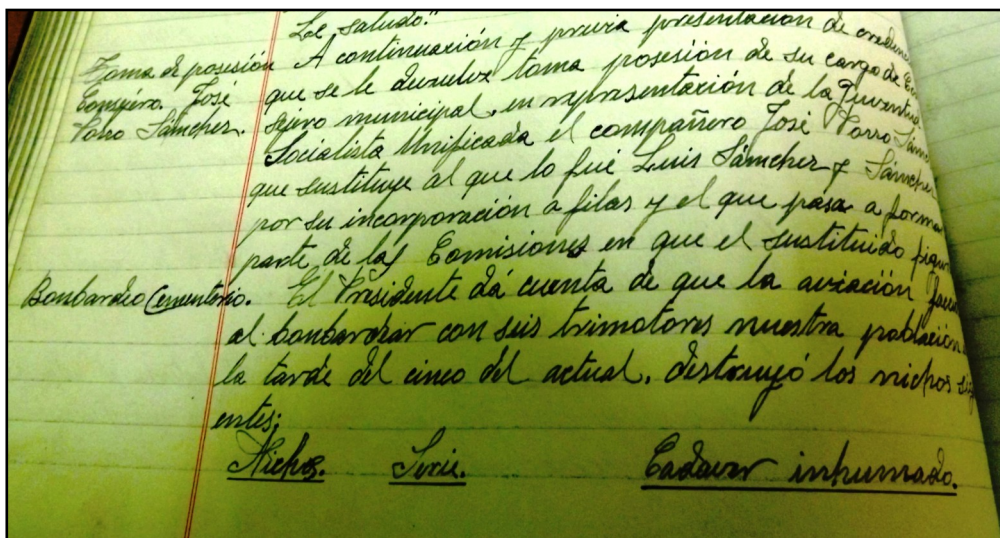 Le saludo."
Toma de posesión
Consejero José
Parro Sánchez.
A continuación y previa presentación de
que se le devuelve toma posesión de su cargo de
sejero municipal, en representación de la
Socialista Unificada el compañero José Parro
que sustituye al que lo fué Luis Sánchez y Sánchez
por su incorporación a filas y el que pasa a
parte de las Comisiones en que el sustituido
Bonbardeo Cementerio.
El Presidente dá cuenta de que la aviación
al bonbardear con seis trimotores nuestra población
la tarde del cinco del actual, destruyó los nichos
entes;
Nichos. Serie. Cadaver inhumado.